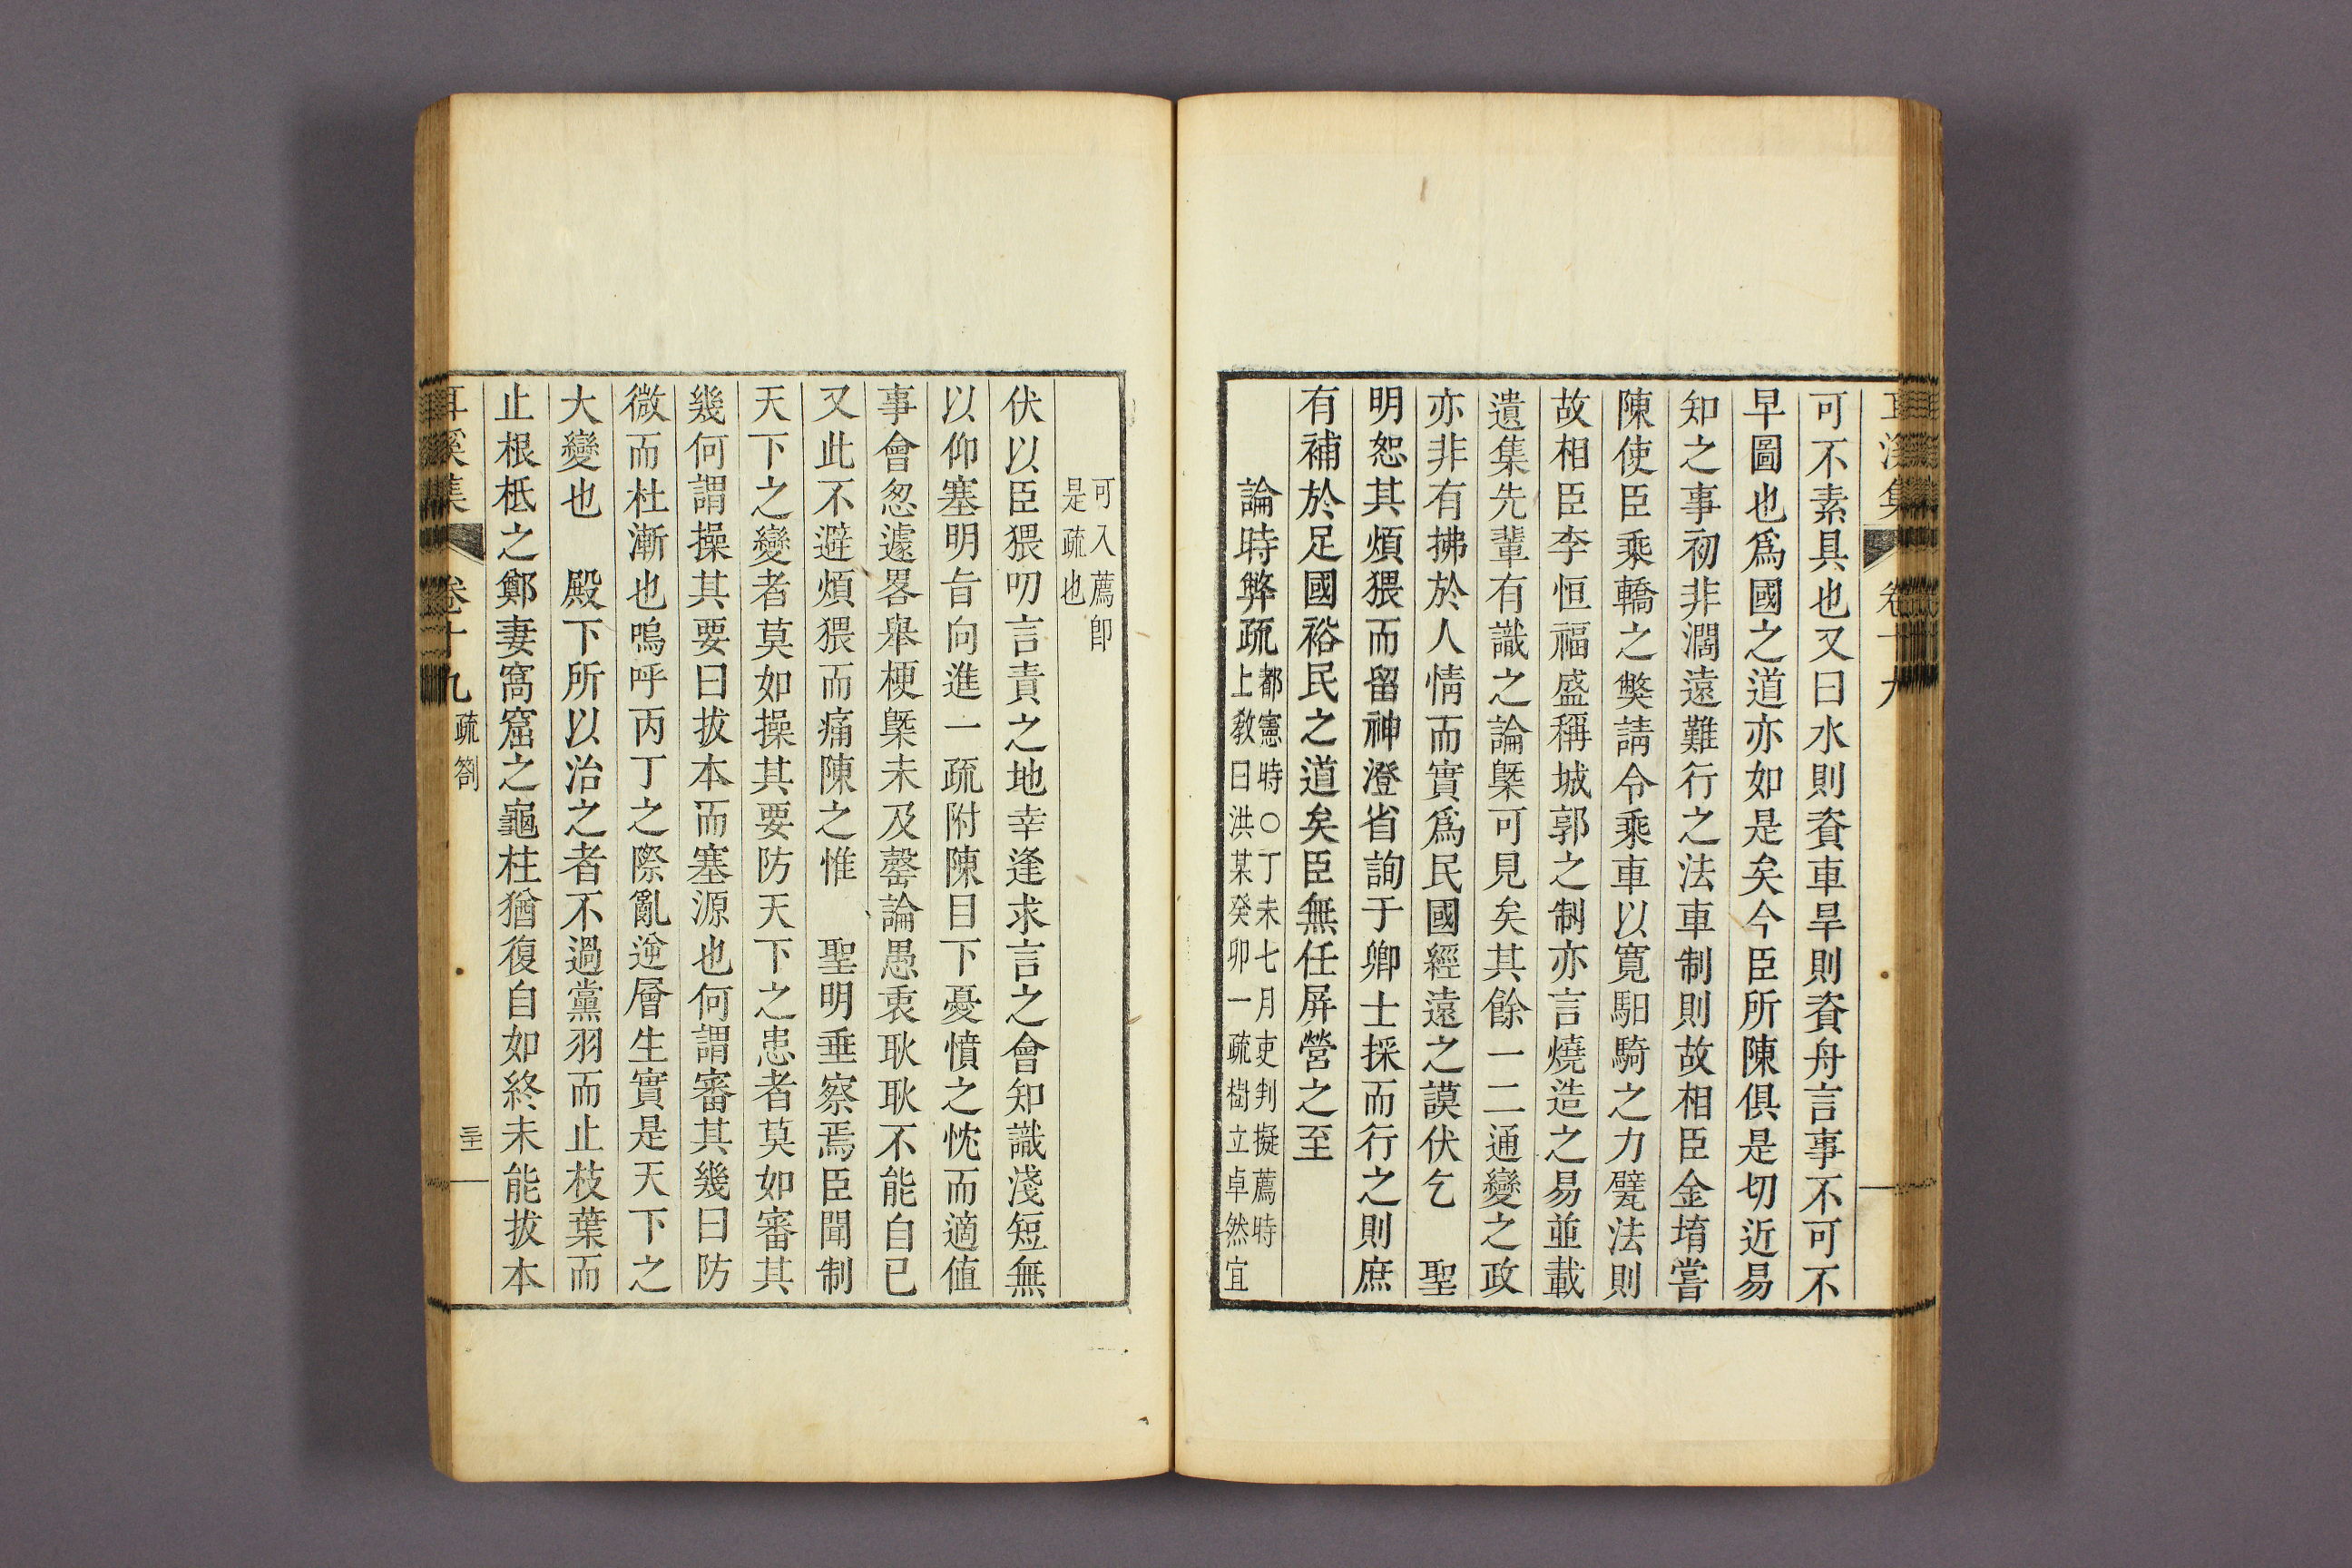 耳溪集 卷十九
可不素具也又曰水則資車旱則資舟言事不可不
早圖也爲國之道亦如是矣今臣所陳俱是切近易
知之事初非濶遠難行之法車制則故相臣金堉嘗
陳使臣乘轎之獘請令乘車以寬馹騎之力甓法則
故相臣李恒福盛稱城郭之制亦言燒造之易並載
遺集先輩有識之論槩可見矣其餘一二通變之政
亦非有拂於人情而實爲民國經遠之謨伏乞　聖
明恕其煩猥而留神澄省詢于卿士採而行之則庶
有補於足國裕民之道矣臣無任屏營之至
論時弊疏
都憲時○丁未七月吏判擬薦時
上敎曰洪某癸卯一疏樹立卓然宜
可入薦卽
是疏也
伏以臣猥叨言責之地幸逢求言之會知識淺短無
以仰塞明旨向進一疏附陳目下憂憤之忱而適值
事會怱遽畧舉梗槩未及罄論愚衷耿耿不能自已
又此不避煩猥而痛陳之惟　聖明垂察焉臣聞制
天下之變者莫如操其要防天下之患者莫如審其
幾何謂操其要曰拔本而塞源也何謂審其幾曰防
微而杜漸也嗚呼丙丁之際亂逆層生實是天下之
大變也　殿下所以治之者不過黨羽而止枝葉而
止根柢之鄭妻窩窟之龜柱猶復自如終未能拔本
耳溪集 卷十九 疏箚 三十二